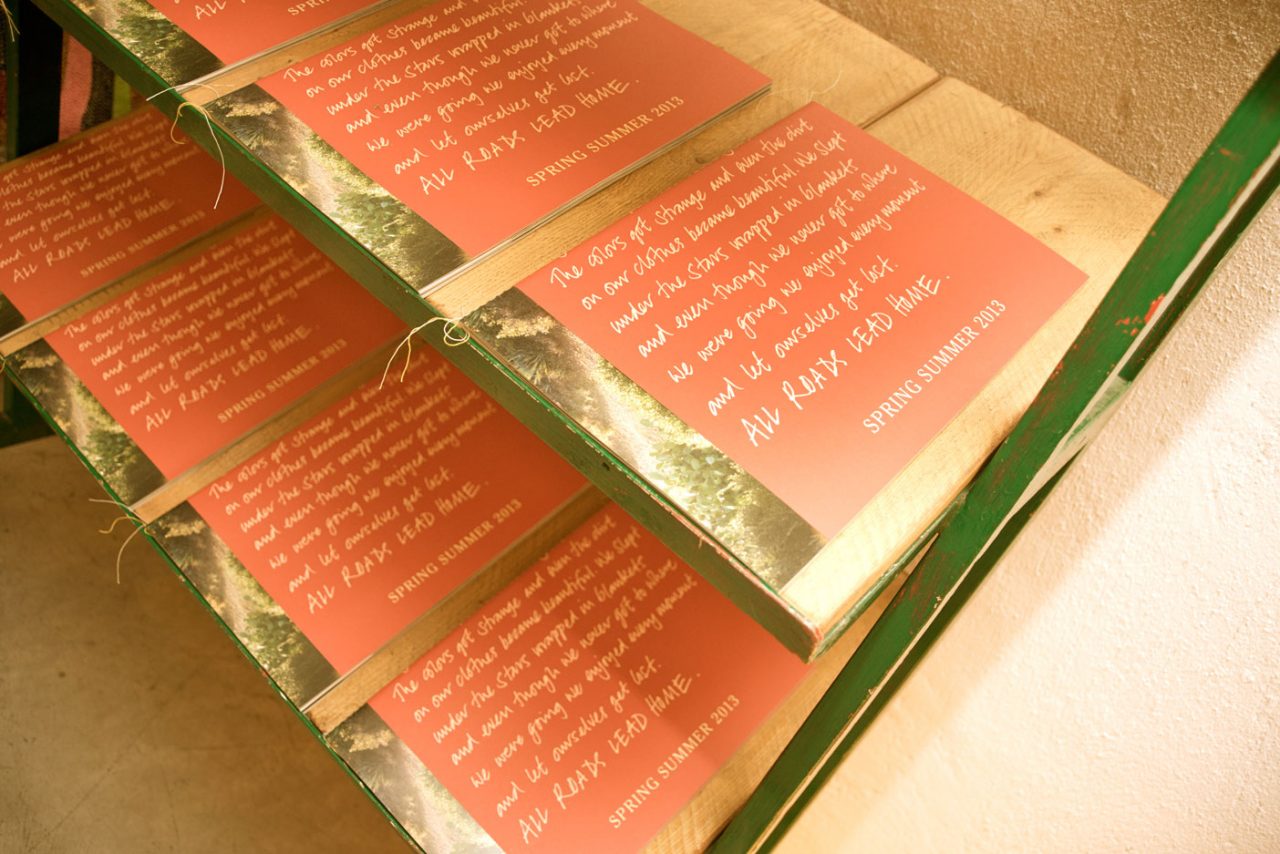 ALL ROADS
SPRING
The colors got strange and
on our clothes became beautiful. We
under the stars wrapped in blankets
and even though we never got to where
we were going we enjoyed every moment
and let ourselves get lost.
ALL ROADS LEAD HOME.
SPRING SUMMER 2013
The colors got strange and even the dirt
on our clothes became beautiful. We slept
under the stars wrapped in blankets
and even though we never got to where
we were going we enjoyed every moment
and let ourselves get lost.
ALL ROADS LEAD HOME.
SPRING SUMMER 2013
our clothes became beautiful. We slept
the stars wrapped in blankets
even though we never got to where
were going we enjoyed every moment
and let ourselves get lost.
ALL ROADS LEAD HOME.
SPRING SUMMER 2013
The colors got strange and even the dirt
on our clothes became beautiful. We slept
under the stars wrapped in blankets
and even though we never got to
we were going we enjoyed every moment
and let ourselves get lost.
ALL ROADS LEAD HOME.
SPRING SUMMER 2013
The colors got strange and even
on our clothes became beautiful. We slept
under the stars wrapped in blankets
and even though we never got to where
we were going we enjoyed every moment
and let ourselves get lost.
ALL ROADS LEAD HOME.
SPRING SUMMER 2013
The colors got strange and even the dirt
on our clothes became beautiful. We slept
under the stars wrapped in blankets
and even though we never got to where
we were going we enjoyed every moment
and let ourselves get lost.
ALL ROADS LEAD HOME.
SPRING SUMMER 2013